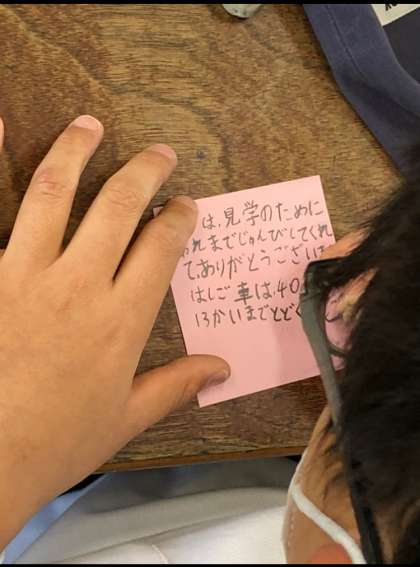 は、見学のために
れまでじゅんびしてくれ
て、ありがとうございま
はしご車は40
13かいまでとどく